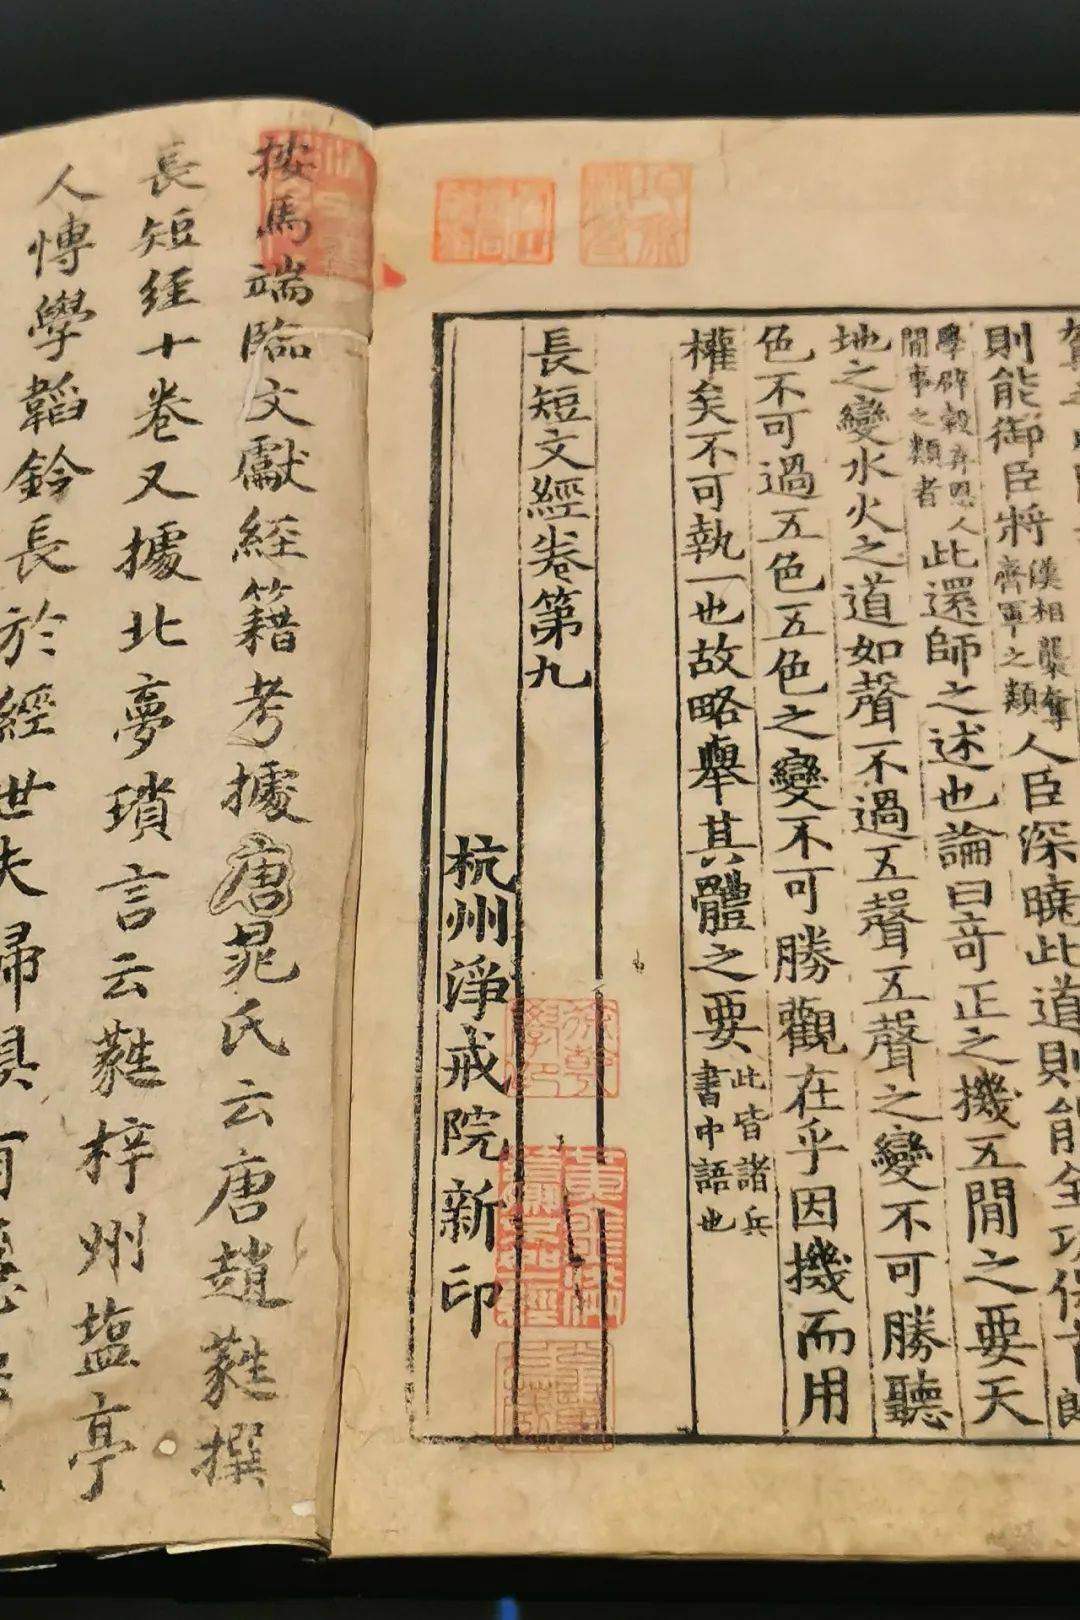 則能御臣將漢相襲奪齊軍之類人臣深曉此道則能全功保首
閒事之類者此還師之述也論曰奇正之機五閒之要天
地之變水火之道如聲不過五聲五聲之變不可勝聽
色不可過五色五色之變不可勝觀在乎因機而用
權矣不可執一也故略舉其體之要此皆諸兵書中語也
長短文經卷第九
杭州淨戒院新印
按馬端臨文獻經籍考據唐晁氏云唐趙蕤撰
長短經十卷又據北夢瑣言云蕤梓州塩亭
人博學韜鈐長於經世夫婦俱有